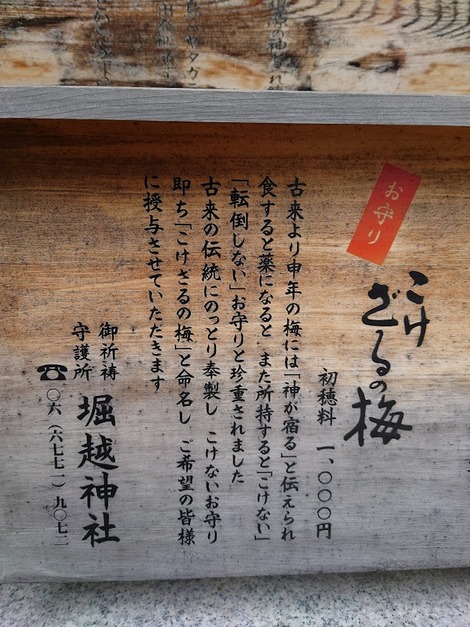 お守り
こけざるの梅
初穂料 一、〇〇〇円
古来より申年の梅には「神が宿る」と伝えられ
食すると薬になると また所持すると「こけない」
「転倒しない」お守りと珍重されました
古来の伝統にのっとり奉製し こけないお守り
即ち「こけざるの梅」と命名し ご希望の皆様
に授与させていただきます
御祈祷
守護所
堀越神社
☎〇六(六七七一)九〇七二